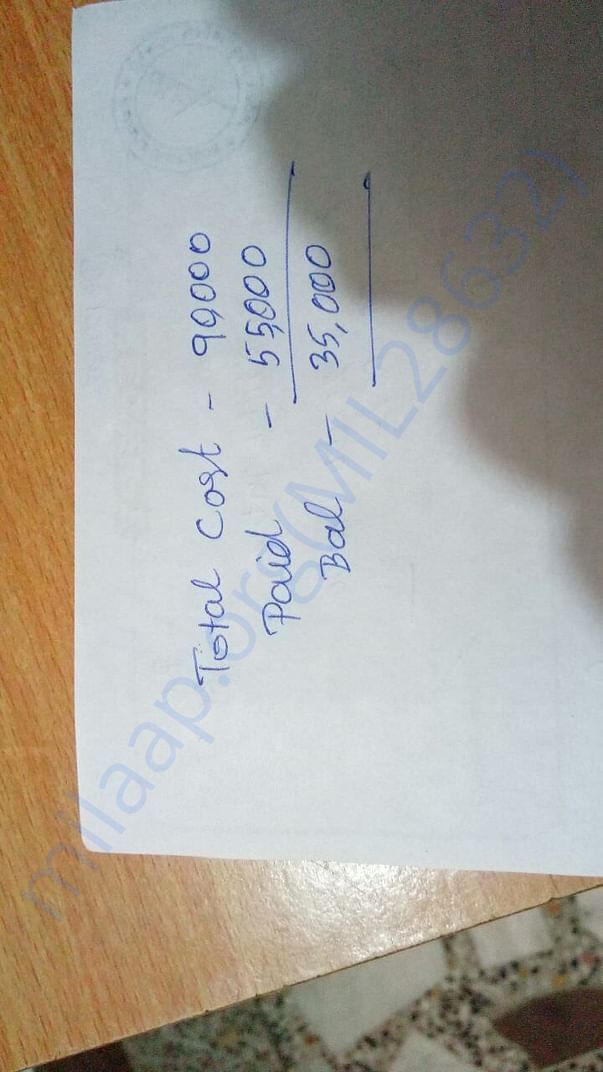 Total Cost - 90,000
Paid - 55,000
Bal - 35,000
milaap.org(MIL28632)